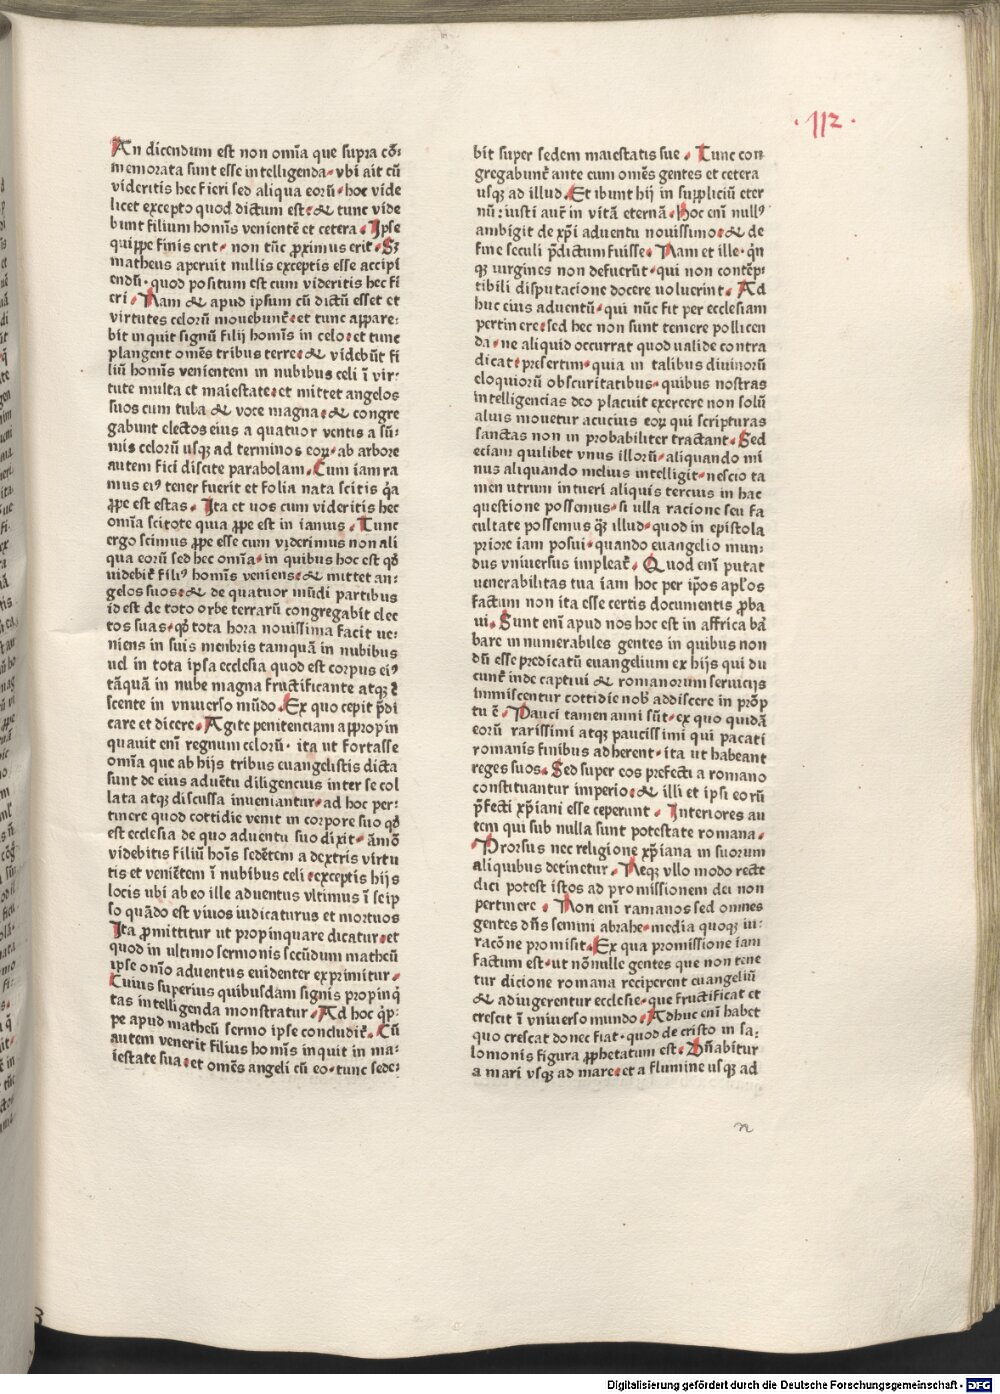 ·112·
An dicendum est non om̄ia que supra cō:
memorata sunt esse intelligenda· vbi ait cū
videritis hec fieri sed aliqua eorū· hoc vide
licet excepto quod dictum est: & tunc vide
bunt filium hom̄is venientē et cetera. Ipse
quippe finis erit· non tūc ꝓximus erit· Sꝫ
matheus aperuit nullis exceptis esse accipi
endū· quod positum est cum videritis hec fi
eri. Nam & apud ipsum cū dictū esset et
virtutes celorū mouebunt̄: et tunc appare:
bit inquit signū filij hom̄is in celo: et tunc
plangent om̄es tribus terre: & videbūt fi
liū hom̄is venientem in nubibus celi ī vir:
tute multa et maiestate: et mittet angelos
suos cum tuba & voce magna: & congre
gabunt electos eius a quatuor ventis a sū:
mis celorū usqꝫ ad terminos eoꝝ· ab arbore
autem fici discite parabolam. Cum iam ra
mus eiꝰ tener fuerit et folia nata scitis q̄a
ꝓpe est estas. Ita et uos cum videritis hec
om̄ia scitote quia ꝓpe est in ianuis. Tunc
ergo scimus ꝓpe esse cum viderimus non ali
qua eorū sed hec om̄ia· in quibus hoc est qđ
uidebit̄ filiꝰ hom̄is veniens: & mittet an:
gelos suos: & de quatuor mūdi partibus
id est de toto orbe terrarū congregabit elec
tos suas· qđ tota hora nouissima facit ue:
niens in suis menbris tamquā in nubibus
uel in tota ipsa ecclesia quod est corpus eiꝰ
tāquā in nube magna fructificante atqꝫ c̄
scente in vniuerso mūdo. Ex quo cepit p̄di
care et dicere. Agite penitenciam appropin
quauit enī regnum celorū· ita ut fortasse
om̄ia que ab hijs tribus euangelistis dicta
sunt de eius aduētu diligencius inter se col
lata atqꝫ discussa inueniantur· ad hoc per:
tinere quod cottidie venit in corpore suo qđ
est ecclesia de quo aduentu suo dixit· āmō
videbitis filiū hoīs sedētem a dextris virtu
tis et veniētem ī nubibus celi: exceptis hijs
locis ubi ab eo ille aduentus vltimus ī seip
so quādo est viuos iudicaturus et mortuos
Ita ꝓmittitur ut propinquare dicatur: et
quod in ultimo sermonis secūdum matheū
ipse om̄o aduentus euidenter exprimitur.
Cuius superius quibusdam signis propinq̄
tas intelligenda monstratur. Ad hoc q̄p:
pe apud matheū sermo ipse concludit̄. Cū
autem venerit filius hom̄is inquit in ma:
iestate sua: et om̄es angeli cū eo· tunc sede:
bit super sedem maiestatis sue. Tunc con
gregabunt̄ ante eum om̄es gentes et cetera
usqꝫ ad illud. Et ibunt hij in suppliciū eter
nū: iusti aut̄ in vitā eternā. Hoc enī nullꝰ
ambigit de xp̄i aduentu nouissimo: & de
fine seculi p̄dictum fuisse. Nam et ille· q̄n
qꝫ uirgines non defuerūt· qui non contēp:
tibili disputacione docere uoluerint. Ad
huc eius aduentū· qui nūc fit per ecclesiam
pertinere: sed hec non sunt temere pollicen
da· ne aliquid occurrat quod ualide contra
dicat: presertim· quia in talibus diuinorū
eloquiorū obscuritatibus· quibus nostras
intelligencias deo placuit exercere non solū
alius mouetur acucius eoꝝ qui scripturas
sanctas non in probabiliter tractant. Sed
eciam quilibet vnus illorū· aliquando mi
nus aliquando melius intelligit· nescio ta
men utrum intueri aliquis tercius in hac
questione possemus· si ulla racione seu fa
cultate possemus q̄ꝫ illud· quod in epistola
priore iam posui· quando euangelio mun:
dus vniuersus impleat̄. Quod enī putat
uenerabilitas tua iam hoc per ip̄os apl̄os
factum non ita esse certis documentis ꝓba
ui. Sunt enī apud nos hoc est in affrica bā
bare innumerabiles gentes in quibus non
dū esse predicatū euangelium ex hijs qui du
cunt̄ inde captiui & romanorum seruicijs
inmiscentur cottidie nob̄ addiscere in prōp
tu ē. Pauci tamen anni sūt· ex quo quidā
eorū rarissimi atqꝫ paucissimi qui pacati
romanis finibus adherent· ita ut habeant
reges suos. Sed super eos prefecti a romano
constituantur imperio: & illi et ipsi eorū
p̄fecti xp̄iani esse ceperunt. Interiores au
tem qui sub nulla sunt potestate romana.
Prorsus nec religione xp̄iana in suorum
aliquibus detinetur. Neqꝫ vllo modo recte
dici potest istos ad promissionem dei non
pertinere. Non enī ramanos sed omnes
gentes dn̄s semini abrahe· media quoqꝫ iu:
racōne promisit. Ex qua promissione iam
factum est· ut nōnulle gentes que non tene
tur dicione romana reciperent euangeliū
& adiugerentur ecclesie· que fructificat et
crescit ī vniuerso mundo. Adhuc enī habet
quo crescat donec fiat· quod de cristo in sa:
lomonis figura ꝓphetatum est. Dn̄abitur
a mari vsqꝫ ad mare: et a flumine usqꝫ ad
Digitalisierung gefördert durch die Deutsche Forschungsgemeinschaft - DFG